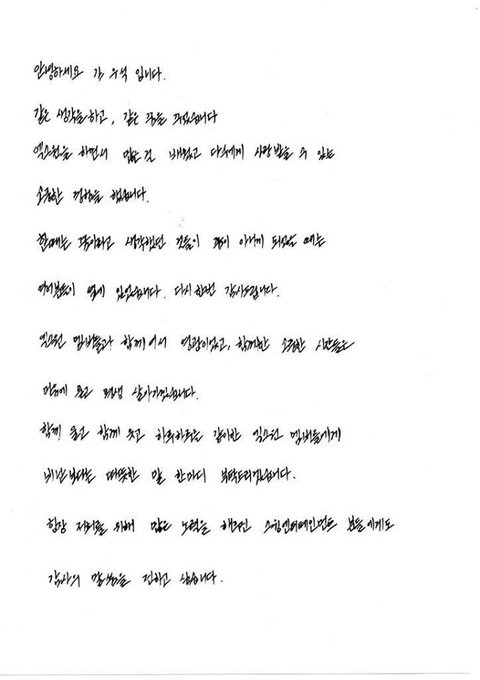 안녕하세요 김 우석 입니다.
같은 생각을 하고, 같은 꿈을 꾸었습니다
엑스원을 하면서 많은 걸 배웠고 다수에게 사랑 받을 수 있는
소중한 경험을 했습니다.
한때는 꿈이라고 생각했던 것들이 꿈이 아니게 되었을 때는
여러분들이 옆에 있었습니다. 다시 한번 감사드립니다.
엑스원 멤버들과 함께여서 영광이었고, 함께한 소중한 시간들은
마음에 품고 평생 살아가겠습니다.
함께 울고 함께 웃고 하루하루를 같이한 엑스원 멤버들에게
비난보다는 따뜻한 말 한마디 부탁드리겠습니다.
항상 저희를 위해 많은 노력을 해주신 스윙엔터테인먼트 분들에게도
감사의 말씀을 전하고 싶습니다.